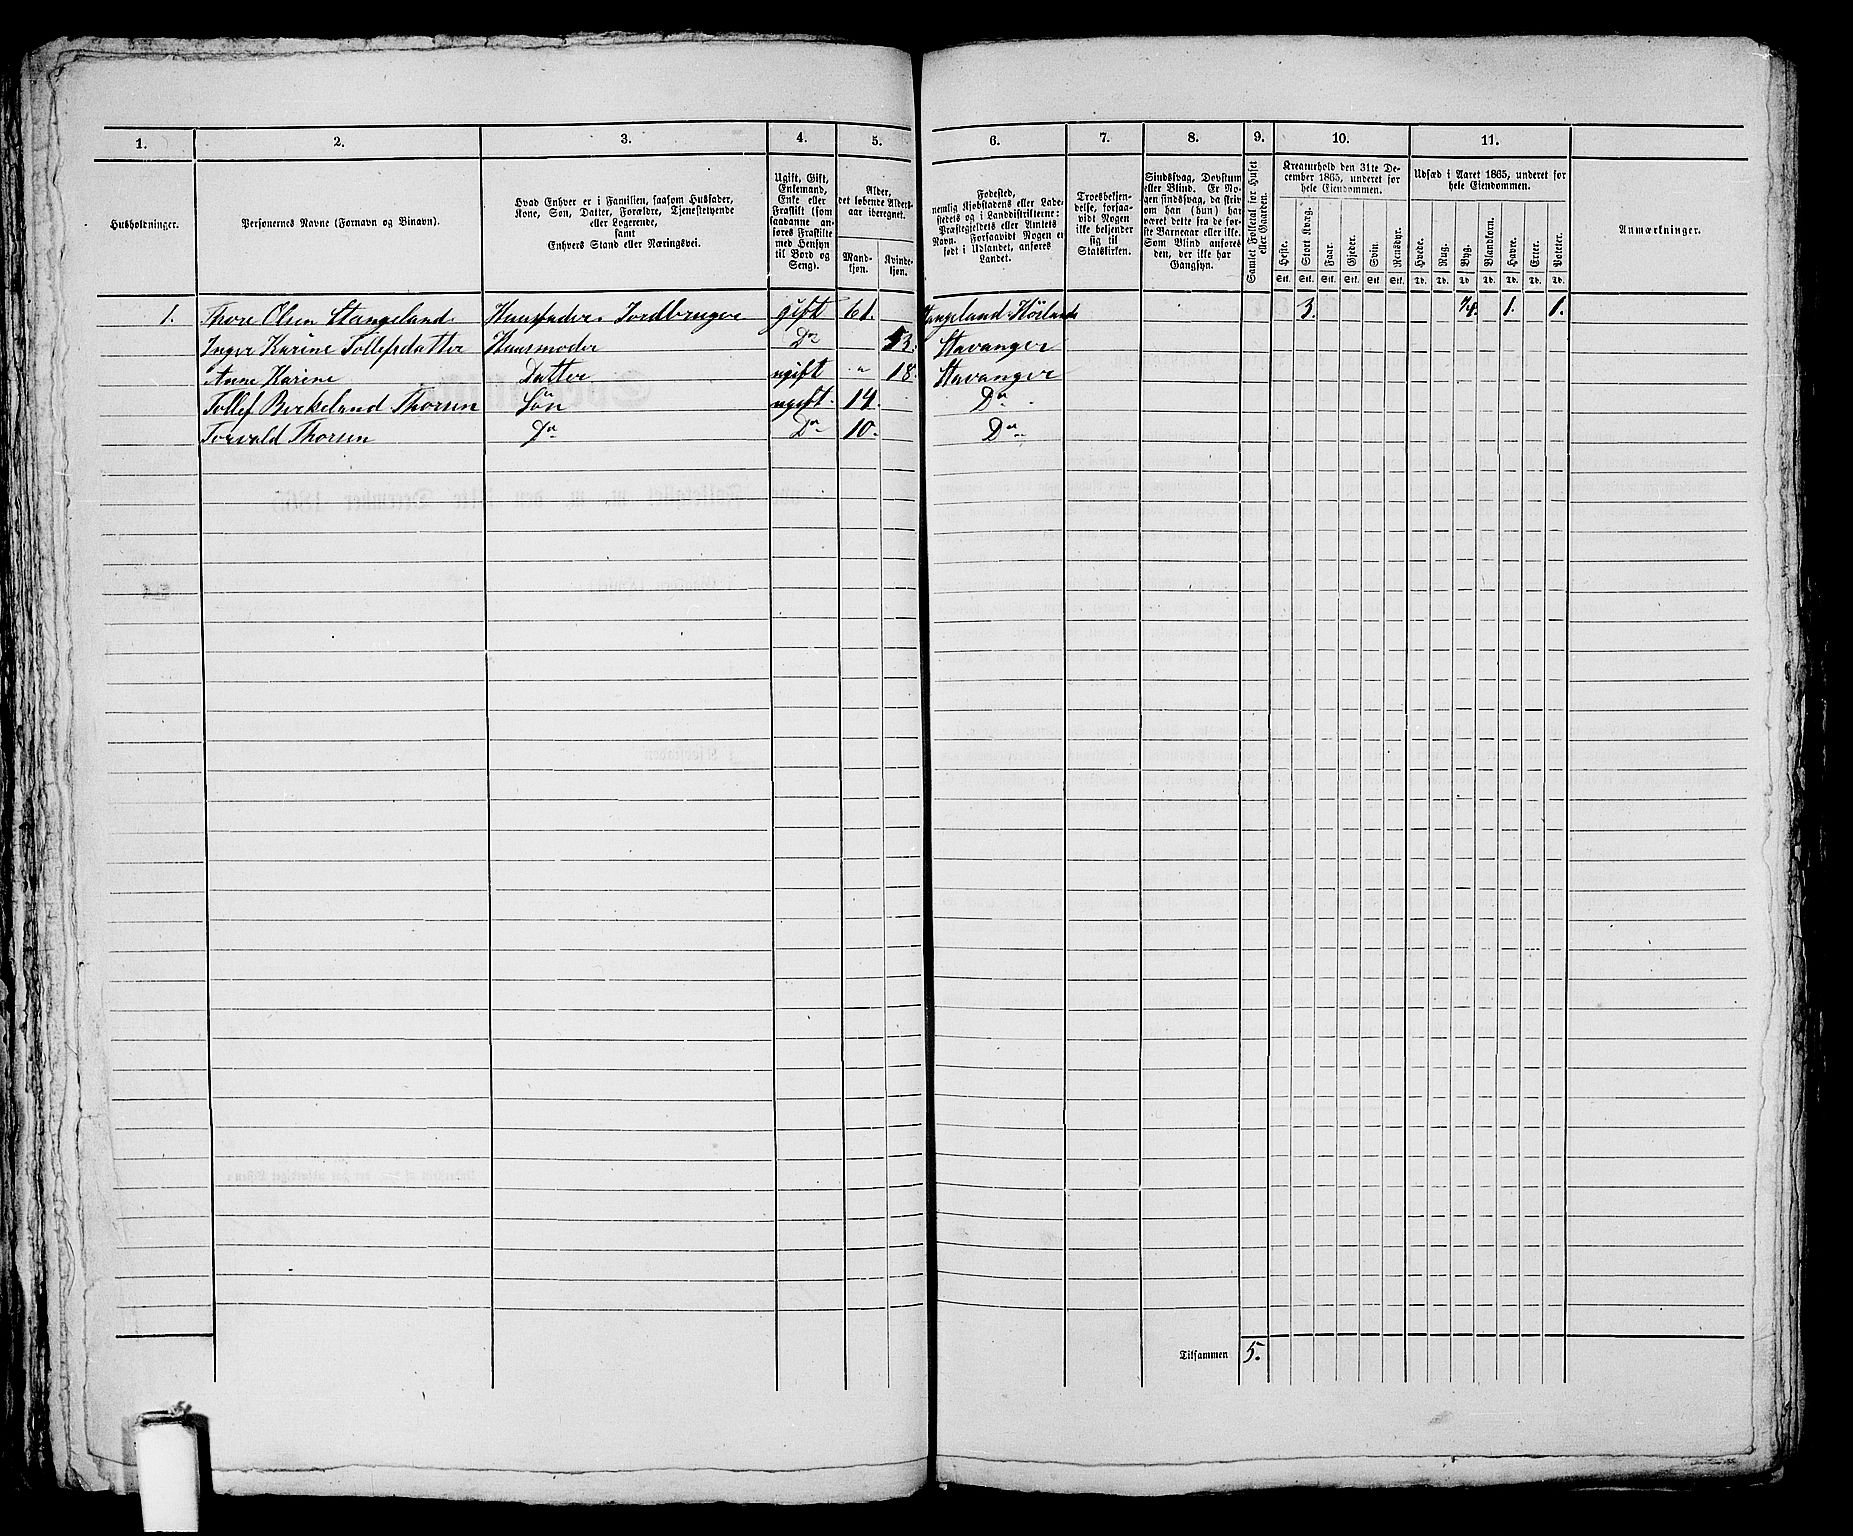 1. 2. 3. 4. 5. 6. 7. 8. 9. 10. 11.
Husholdninger.
Personernes Navne (Fornavn og Binavn).
Hvad Enhver er i Familien, saasom Husfader,
Kone, Søn, Datter, Forældre, Tjenestetyende
eller Logerende,
samt
Enhvers Stand eller Næringsvei.
Ugift, Gift,
Enkemand,
Enke eller
Fraskilt (som
saadanne an-
føres Fraskilte
med Hensyn
til Bord og
Seng).
Alder,
det løbende Alders-
aar iberegnet.
Mand-
kjøn.
Kvinde-
kjøn.
Fødested,
nemlig Kjøbstadens eller Lade-
stedets og i Landdistrikterne:
Præstegjeldets eller Amtets
Navn. Forsaavidt Nogen er
født i Udlandet, anføres
Landet.
Troesbekjen-
delse, forsaa-
vidt Nogen
ikke bekjender
sig til
Statskirken.
Sindssvag, Døvstum
eller Blind. Er No-
gen sindssvag, da skriv
om han (hun) har
været dette fra de før-
ste Barneaar eller ikke.
Som Blind anføres
den, der ikke har
Gangsyn.
Samlet Folketal for Huset
eller Gaarden.
Kreaturhold den 31te De-
cember 1865, underet for
hele Eiendommen.
Heste. Stort Kvæg. Faar. Gjeder. Svin. Rensdyr.
Stk. Stk. Stk. Stk. Stk. Stk.
Udsæd i Aaret 1865, underet for
hele Eiendommen.
Hvede. Rug. Byg. Blandkorn. Havre. Erter. Poteter.
Td. Td. Td. Td. Td. Td. Td.
Anmærkninger.
1. Thore Olsen Stangeland Huusfader Jordbruger gift 61. Stangeland Höiland 3. 1/4. 1. 1.
Inger Karine Tollefsdatter Huusmoder Do 53. Stavanger
Anne Karine Datter ugift " 18. Stavanger
Tollef Birkeland Thorsen Sön ugift 14. Do
Torvald Thorsen Do Do 10. Do
Tilsammen 5.